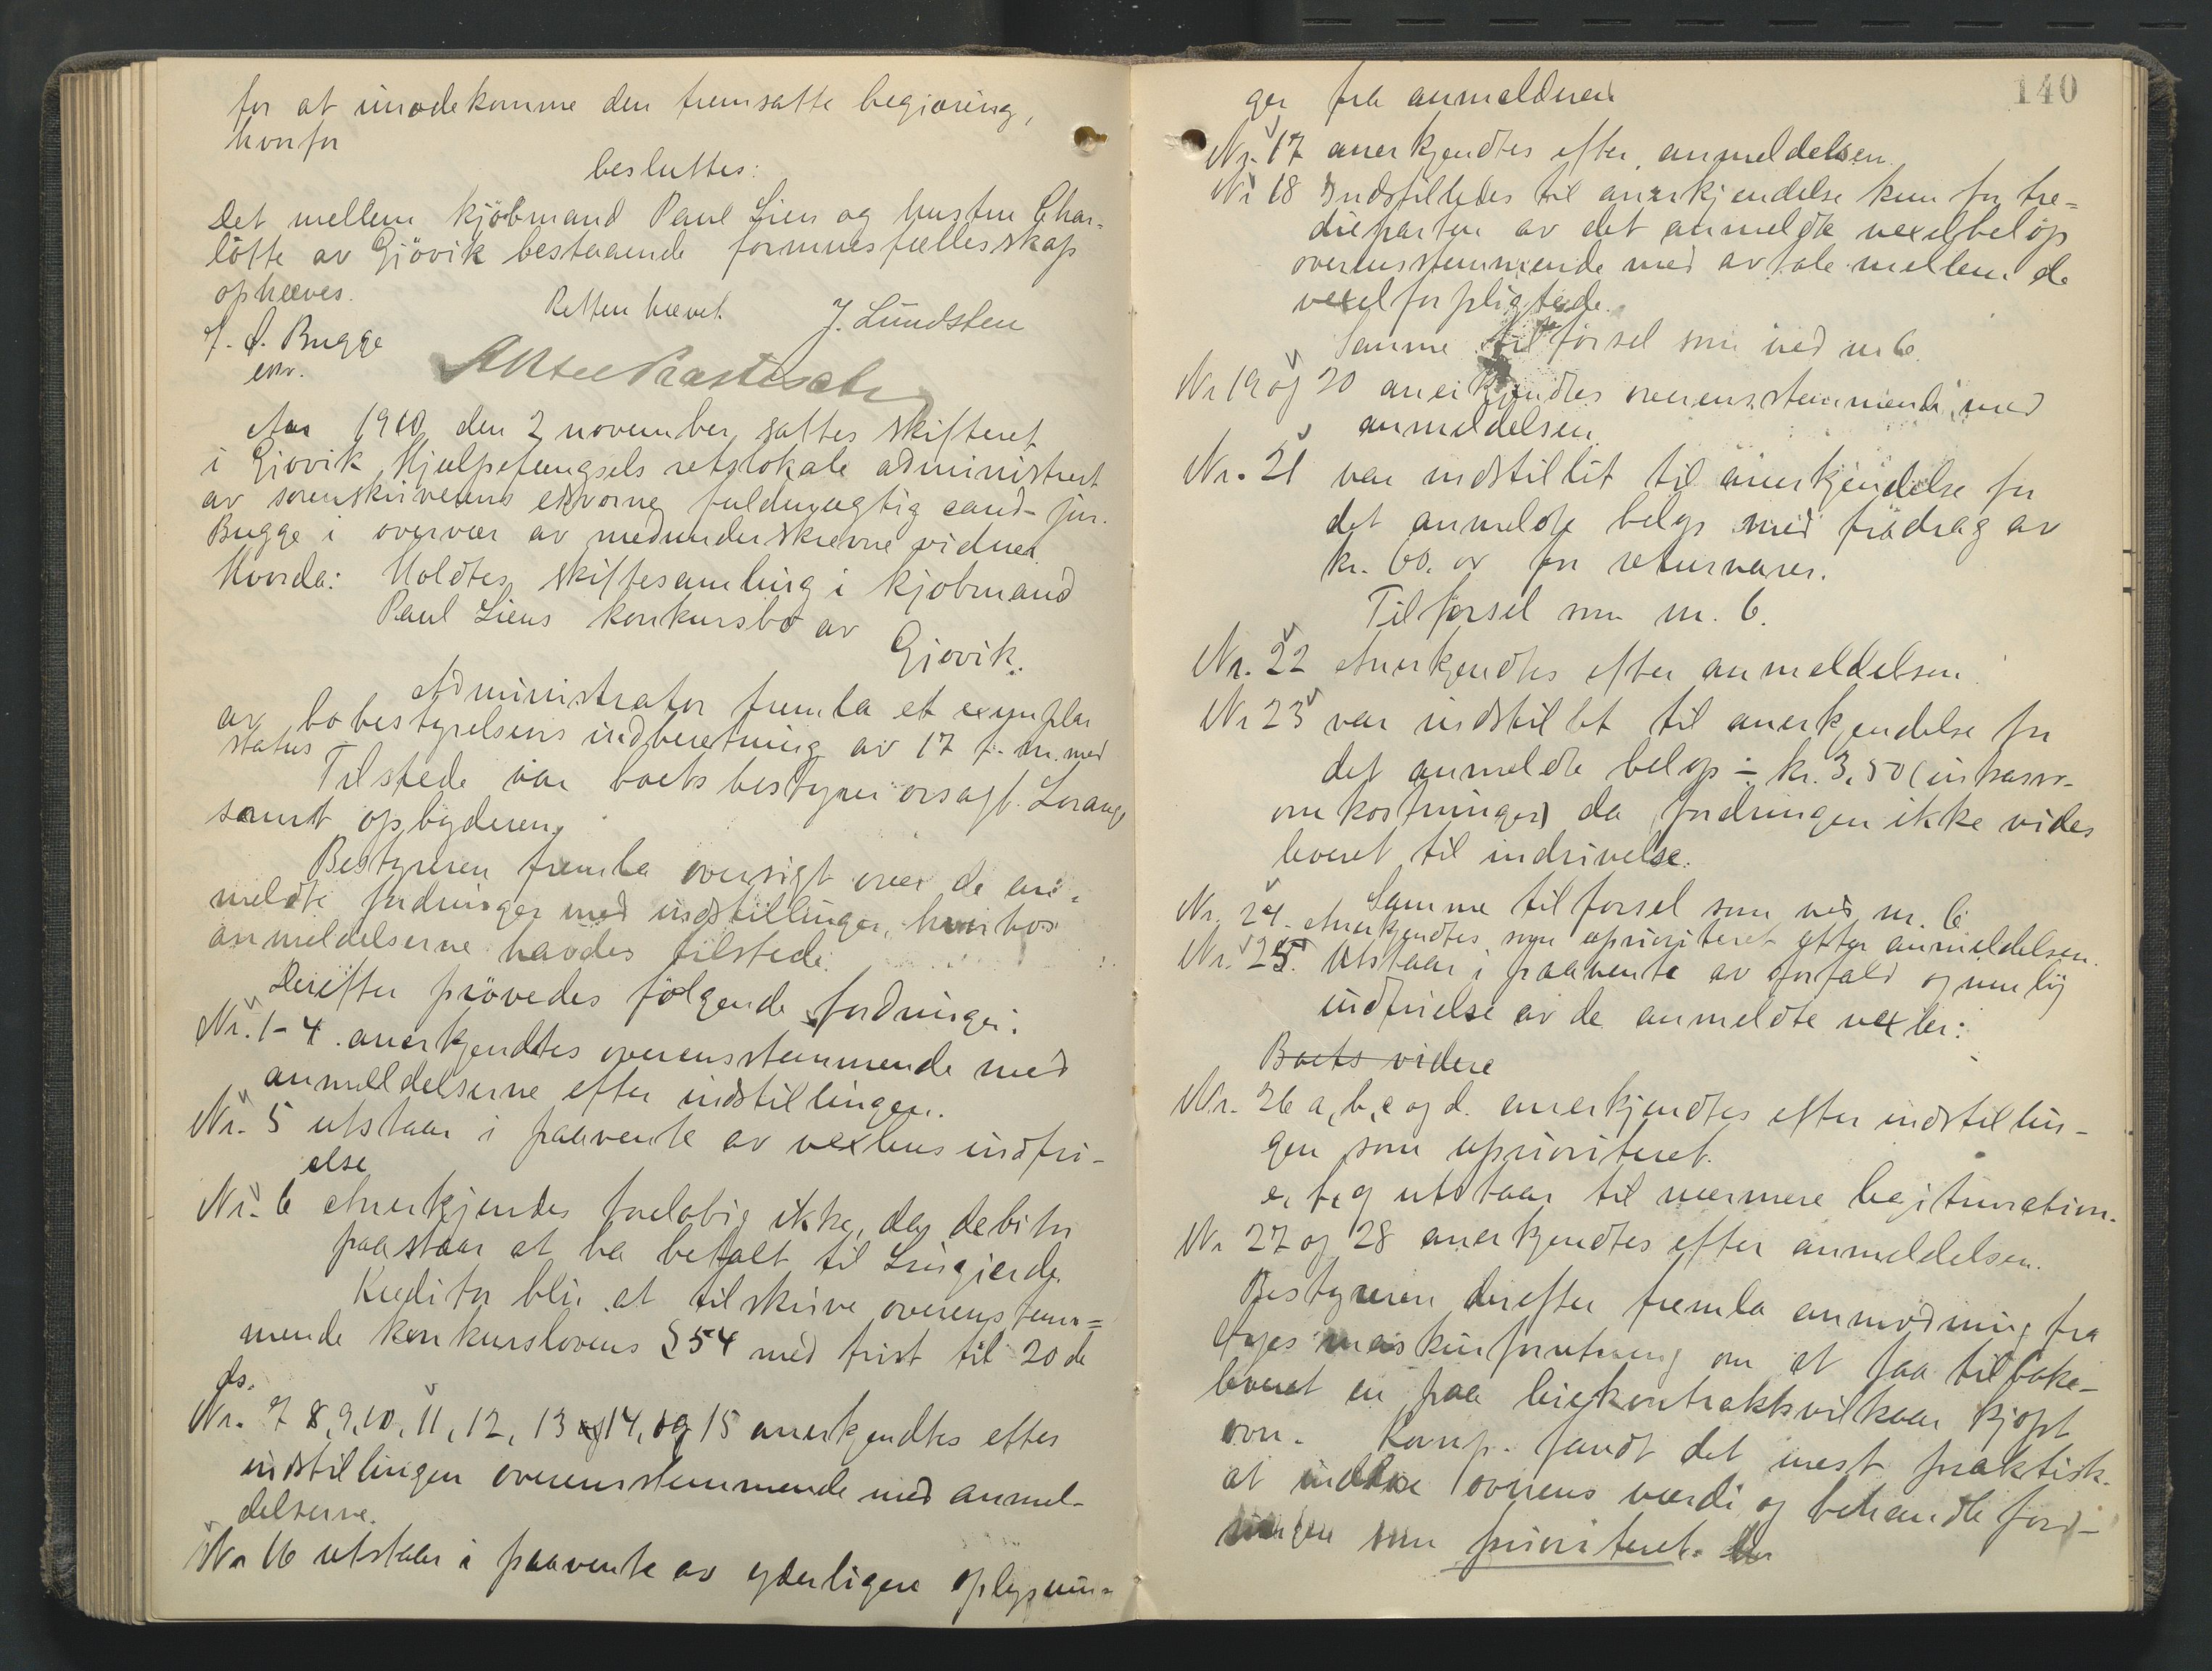 for at imødekomme den fremsatte begjæring,
hvorfor
besluttes:
Det mellem kjøbmand Paul Lien og hustru Char-
lotte av Gjøvik bestaaende formuesfællesskap
ophæves.
Retten hævet.
J. Lundsten
J. S. Bugge
esv.
Aar 1910 den 2 november sattes skifteret
i Gjøvik Hjælpefængsels retslokale administrert
av sorenskriverens edsvorne fuldmægtig cand. jur.
Bugge i overvær av medunderskrevne vidner.
Hvorda: Holdtes skiftesamling i kjøbmand
Paul Liens konkursbo av
Gjøvik.
Administrator fremla et exemplar
av bobestyrelsens indberetning av 17 f. m. med
status
Tilstede var boets bestyrer orsagf. Lorang
samt opbyderen.
Bestyreren fremla oversigt over de an-
meldte fordringer med indstillinger, hvorhos
anmeldelserne havdes tilstede.
Derefter prøvedes følgende fordringer:
Nr. 1-4. anerkjendtes overensstemmende med
anmeldelserne efter indstillingen.
Nr. 5 utstaar i paavente av vexlens indfri-
else
Nr. 6 Anerkjendes foreløbig ikke, da debitor
paastaar at ha betalt til Lusgjerde.
Kreditor blir at tilskrive overenstem=
mende konkurslovens § 54 med frist til 20de
ds.
Nr. 7 8, 9, 10, 11, 12, 13 og 14, og 15 anerkjendtes efter
indstillingen overensstemmende med anmel-
delserne.
Nr 16 utstaar i paavente av yderligere oplysnin-
140
ger fra anmelderen
Nr. 17 anerkjendtes efter anmeldelsen.
Nr 18 Indstilledes til anerkjendelse kun for tre=
dieparten av det anmeldte vexelbeløp
overensstemmende med avtale mellem de
vexelforpligtede.
Samme tilførsel som ved nr 6.
Nr 19 og 20 anerkjendtes overensstemmende med
anmeldelsen.
Nr. 21 var indstillet til anerkjendelse for
det anmeldte beløp med fradrag av
kr. 60. or for returvarer.
Tilførsel som nr. 6.
Nr. 22 Anerkjendtes efter anmeldelsen.
Nr 23 var indstillet til anerkjendelse for
det anmeldte beløp ÷ kr. 3,50 (inkasso-
omkostninger) da fordringen ikke vides
leveret til indrivelse.
Samme tilførsel som ved nr. 6
Nr. 24. Anerkjendtes som uprioriteret efter anmeldelsen.
Nr. 25. Utstaar i paavente av forfald og mulig
indfrielse av de anmeldte vexler.
Boets videre
Nr. 26 a, b, c og d. anerkjendtes efter indstillin-
gen som uprioriteret.
e, f, g utstaar til nærmere legitimation.
Nr 27 og 28 anerkjendtes efter anmeldelsen.
Bestyreren derefter fremla anmodning fra
Ayes maskinforretning om at faa tilbake-
leveret en paa leiekontraktvilkaar kjøpt
ovn. Komp. fandt det mest praktisk
at indløse ovnens værdi og behandle ford-
ringen som prioriteret.